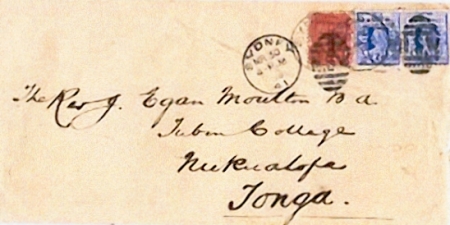 SYDNEY
The Rev J. Egan Moulton B a.
Tubou College
Nukualofa
Tonga.